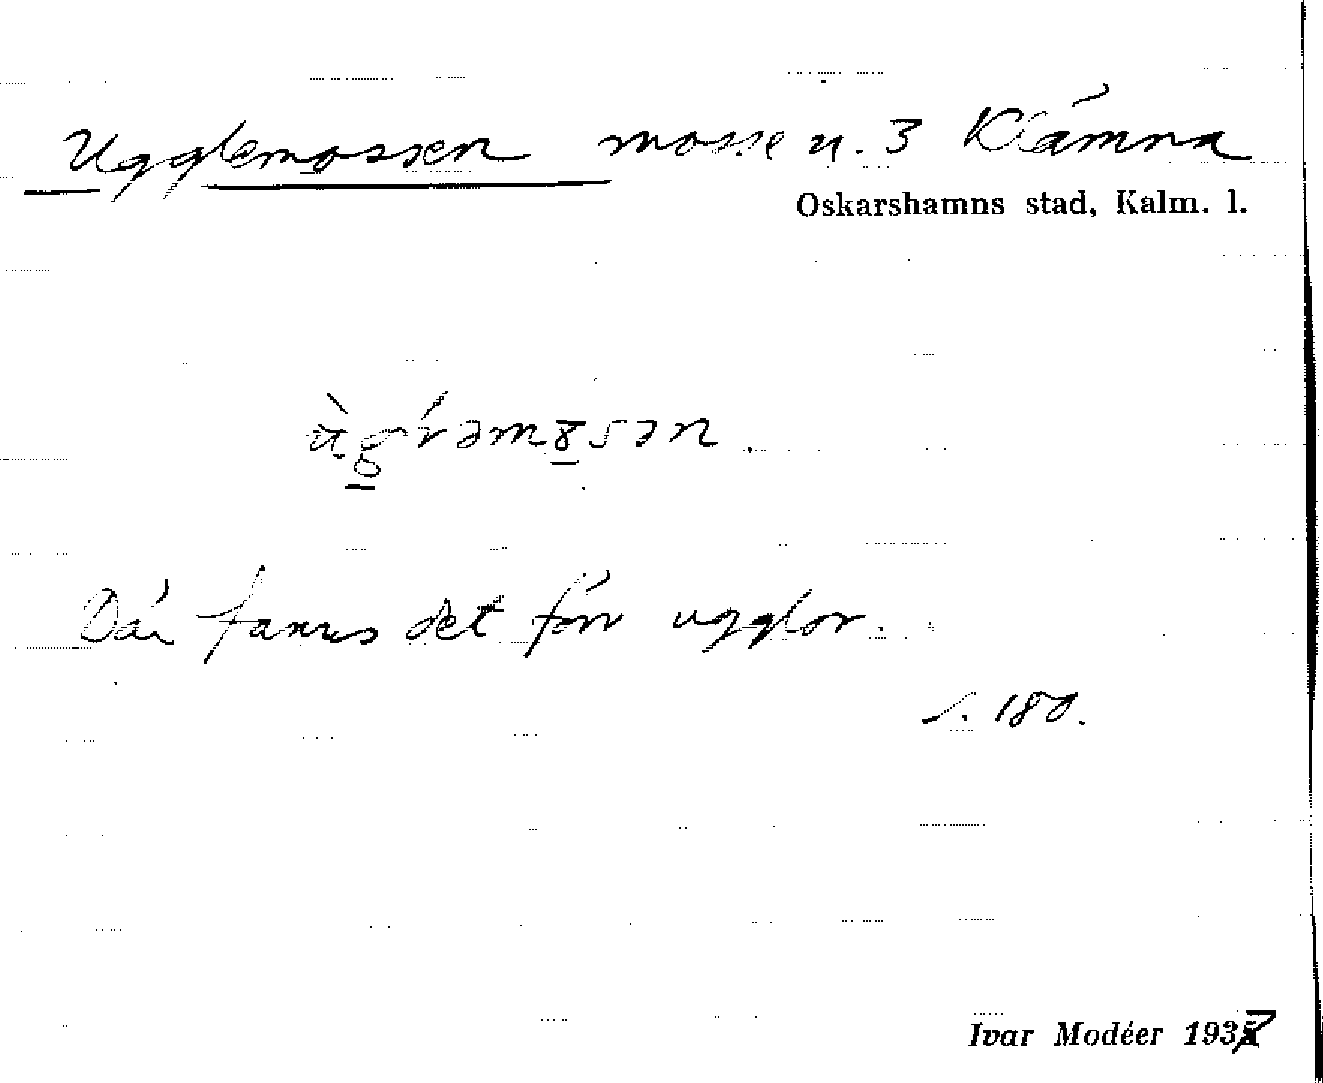 Ugglemossen mosse u. 3 Klämna
Oskarshamns stad, Kalm. l.
Där fanns det förr ugglor.
s. 180.
Ivar Modéer 1937